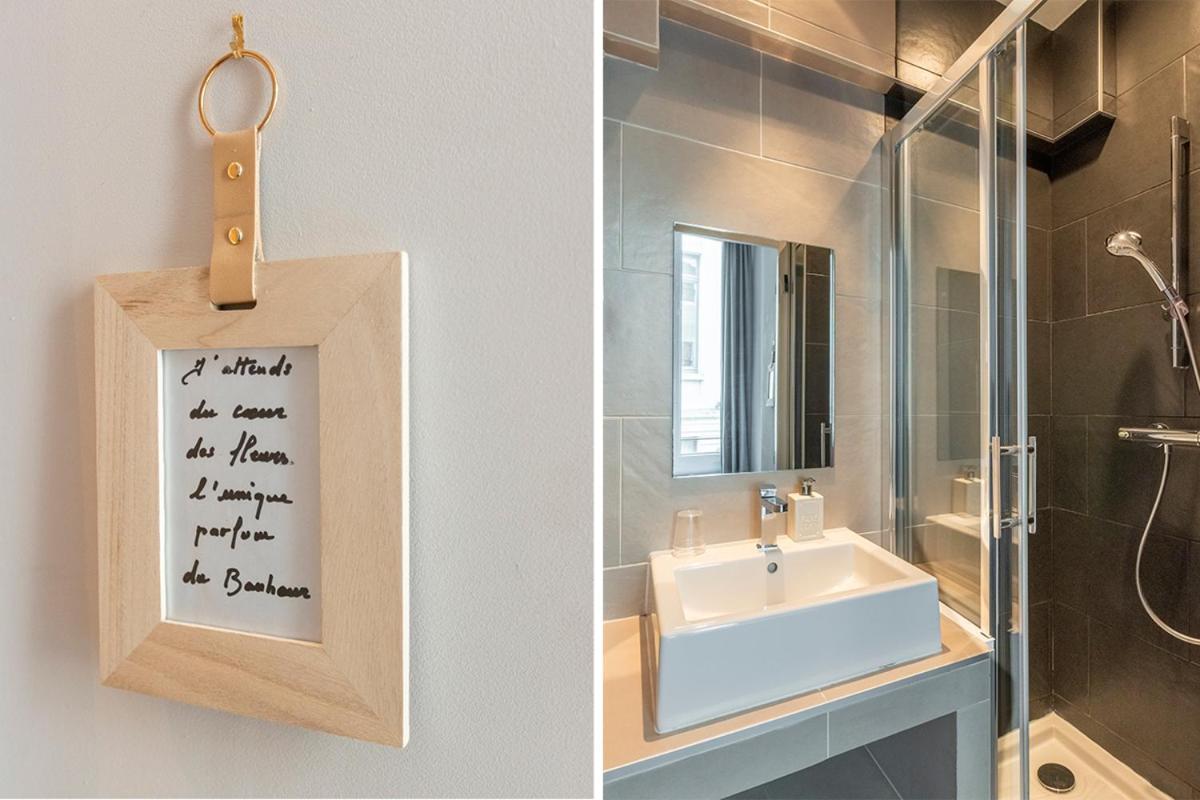 J'attends
du cœur
des fleurs
l'unique
parfum
du Bonheur